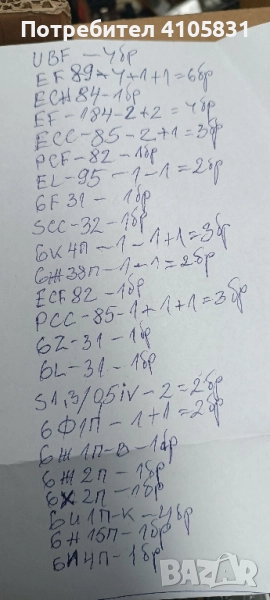 Потребител 4105831
UBF - 4бр
EF 89 - 4+1+1 = 6бр
ECH 84 - 1бр
EF - 184 - 2+2 = 4бр
ECC - 85 - 2+1 = 3бр
PCF - 82 - 1бр
EL - 95 - 1 - 1 = 2бр
6F 31 - 1бр
SCC - 32 - 1бр
6К 4П - 1 - 1+1 = 3бр
6Ж 38П - 1+1 = 2бр
ECF 82 - 1бр
PCC - 85 - 1+1+1 = 3бр
6Z - 31 - 1бр
6L - 31 - 1бр
S1,3/0,5iV - 2 = 2бр
6Ф1П - 1+1 = 2бр
6Ж 1П - В - 1бр
6Ж 2П - 1бр
6Х 2П - 1бр
6И 1П - К - 4бр
6Н 15П - 1бр
6И4П - 1бр
bazar